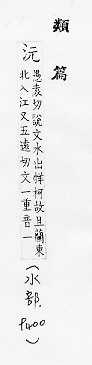 類篇
沅
愚袁切說文水出牂柯故且蘭東
北入江又五遠切文一重音一
(水部.
P400)